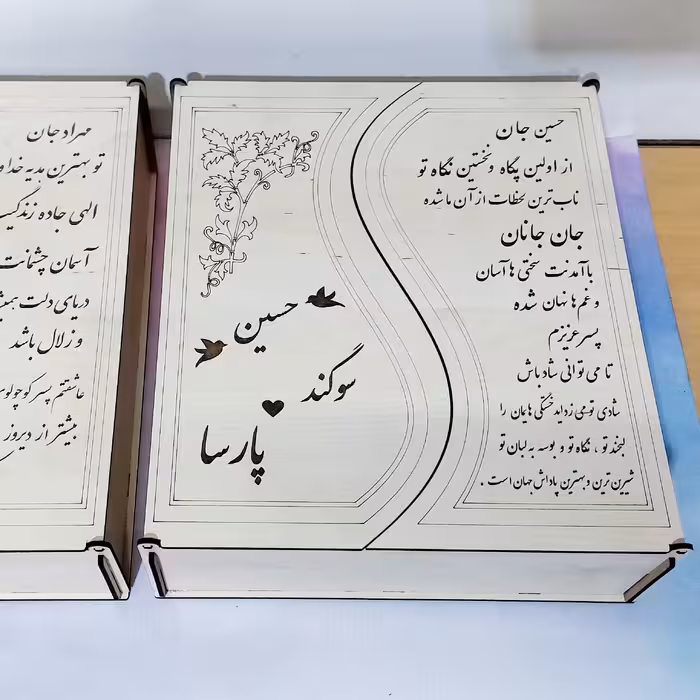 حسین جان
از اولین پگاه و نخستین نگاه تو
ناب ترین لحظات از آن ما شده
جان جانان
با آمدنت سختی ها آسان
و غم ها نهان شده
پسر عزیزم
تا می توانی شاد باش
شادی تو می زداید خستگی هایمان را
لبخند تو ، نگاه تو و بوسه به لبان تو
شیرین ترین و بهترین پاداش جهان است .
حسین
سوگند
پارسا
مهراد جان
تو بهترین هدیه خداو
الهی جاده زندگیت
آسمان چشمانت
دریای دلت همیش
و زلال باشد
عاشقتم پسر کوچولو
بیشتر از دیروز